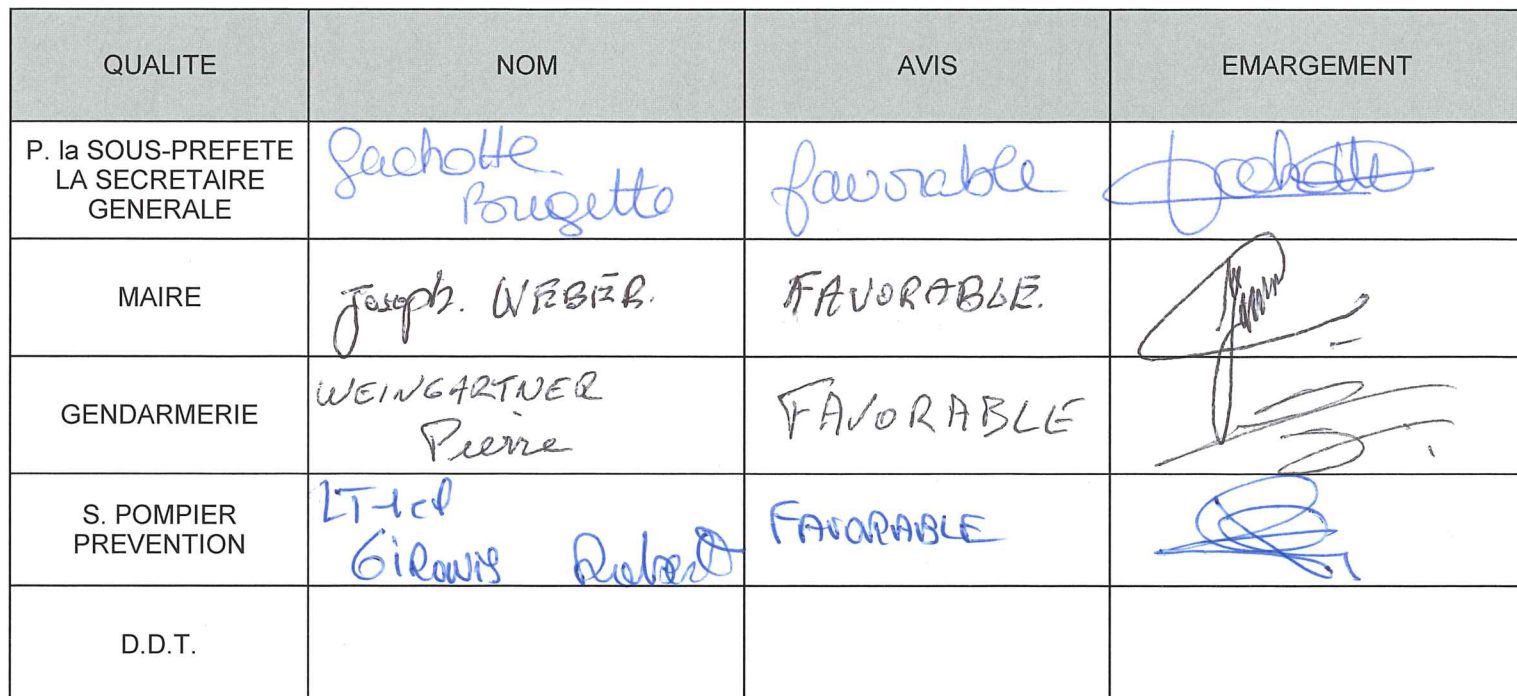 QUALITE NOM AVIS EMARGEMENT
P. la SOUS-PREFETE
LA SECRETAIRE
GENERALE
Gachotte
Brigette
favorable
MAIRE
Joseph. WEBER.
FAVORABLE.
GENDARMERIE
WEINGARTNER
Pierre
FAVORABLE
S. POMPIER
PREVENTION
LT 1cl
Robert
FAVORABLE
D.D.T.